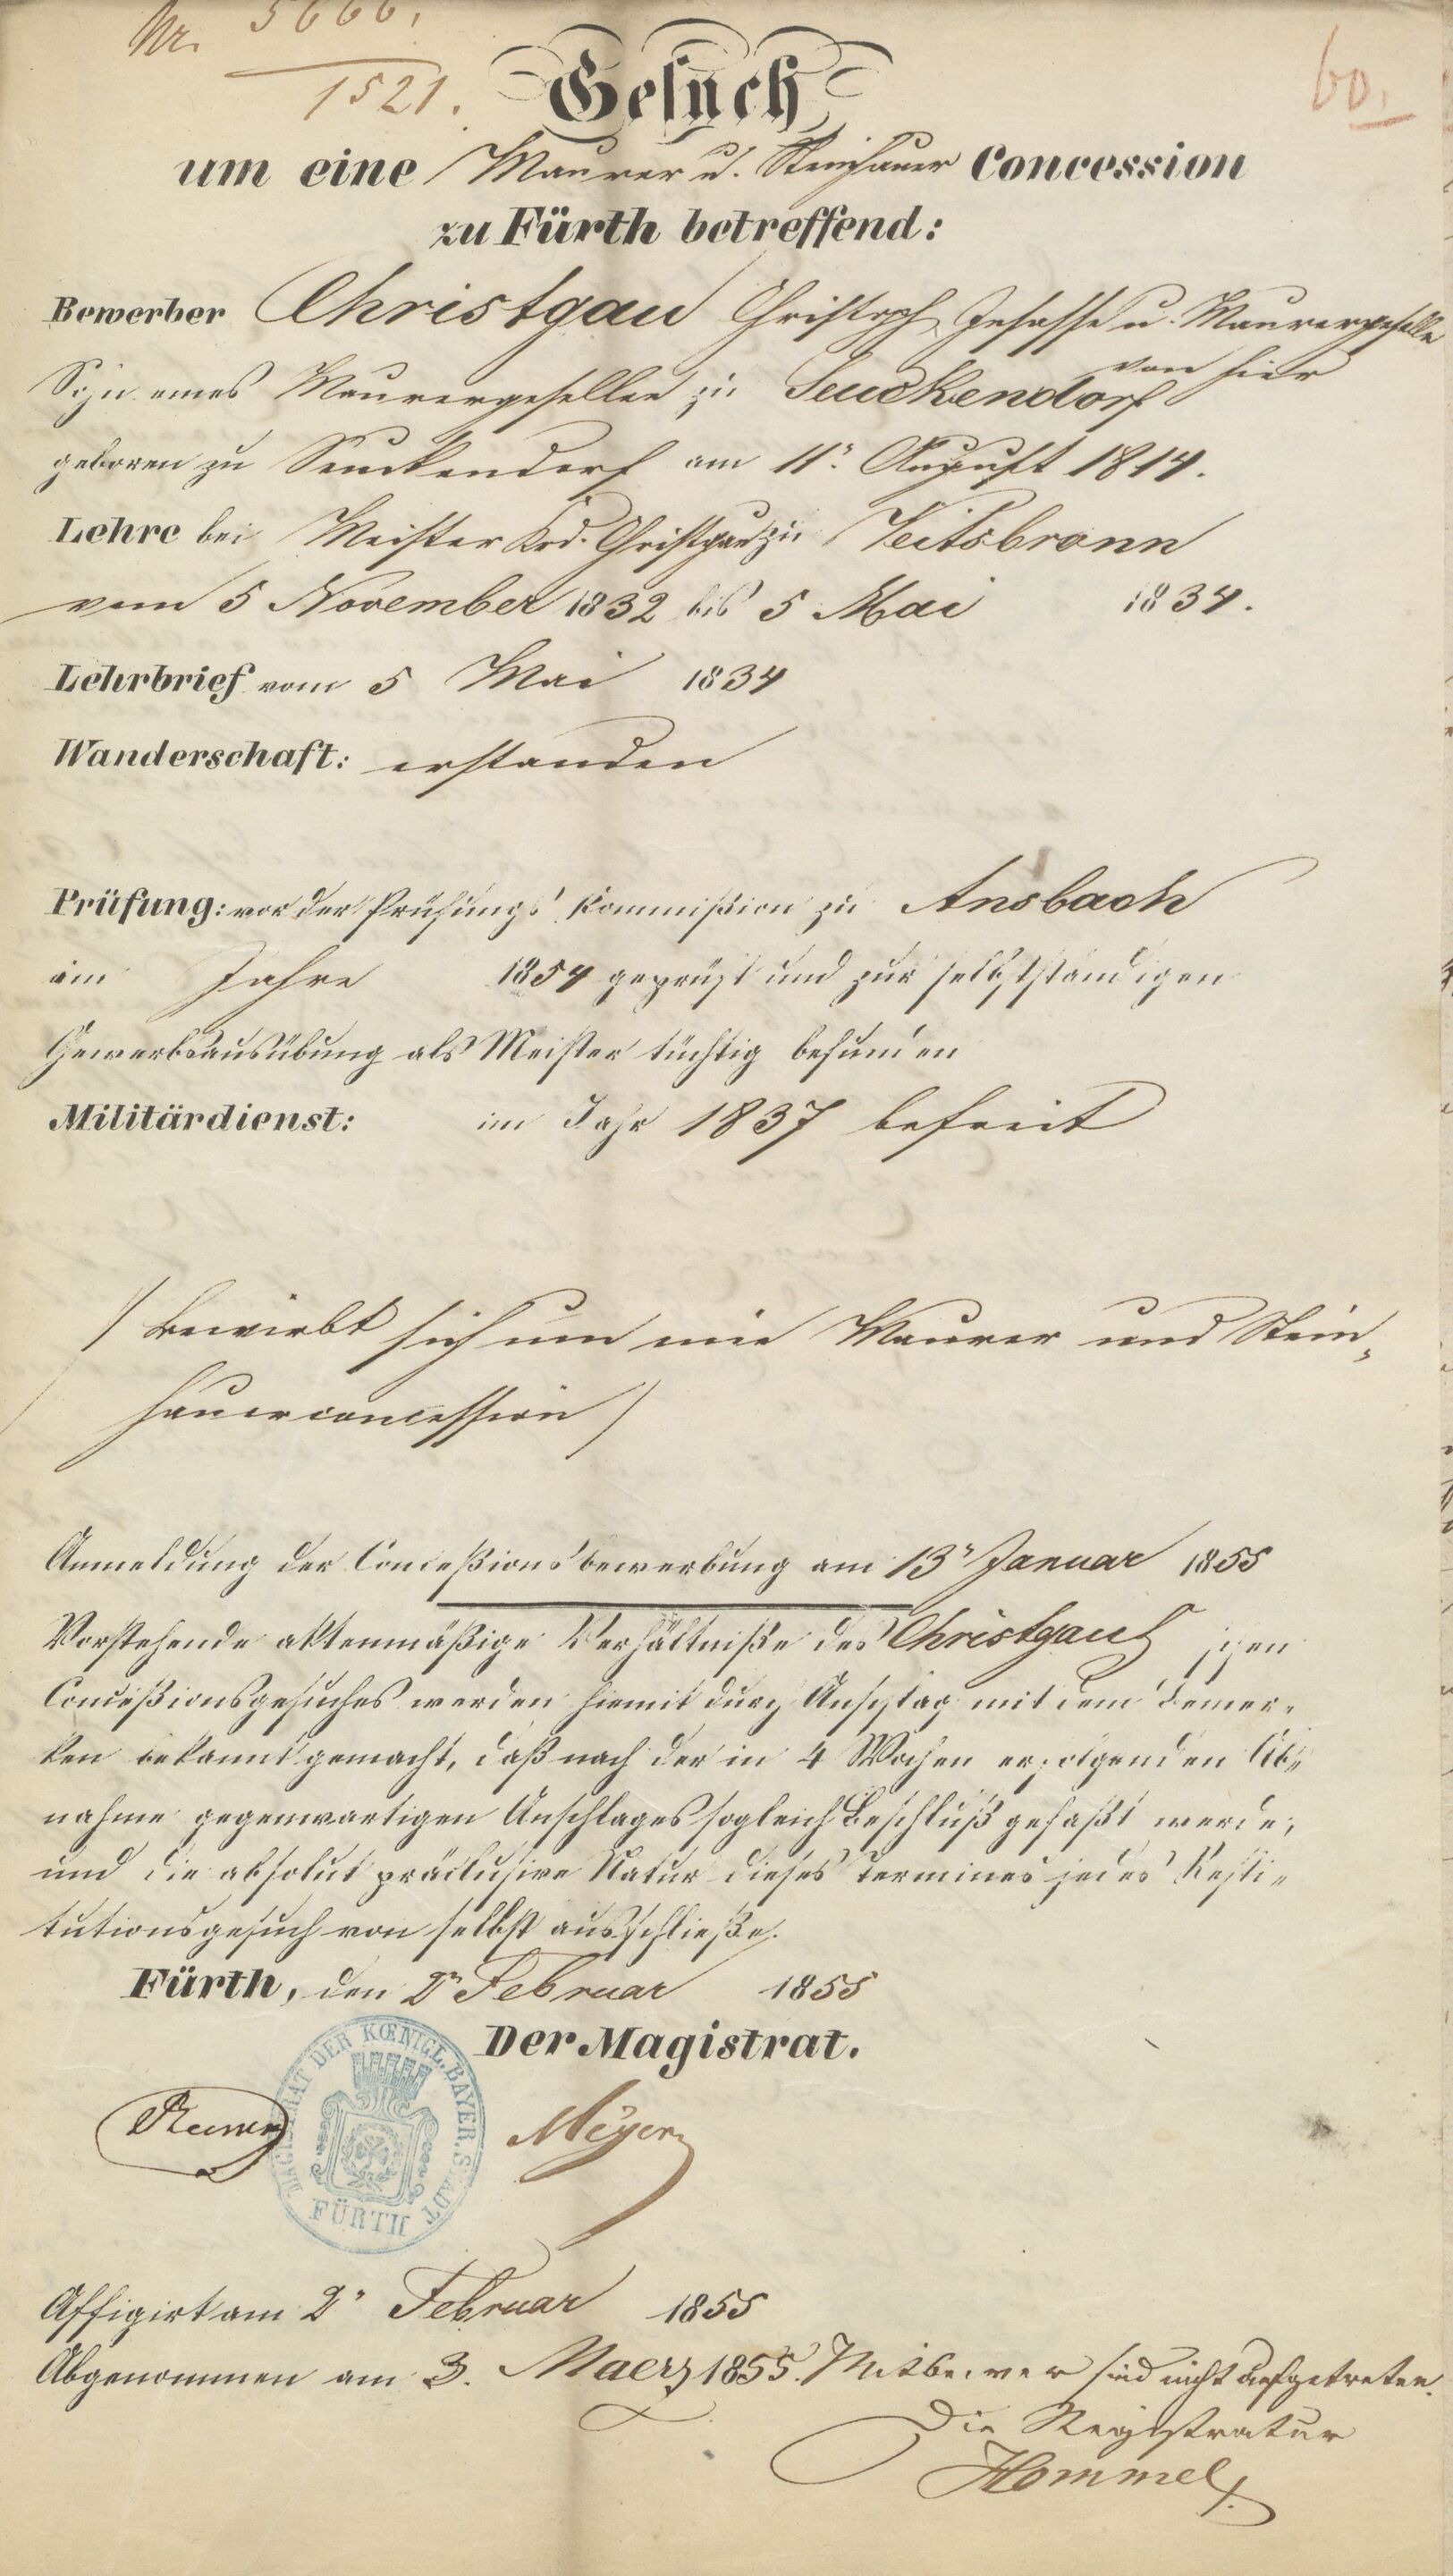 Nr. 5666.
1521.
60.
Gesuch
um eine Maurer u. Steinhauer Concession
zu Fürth betreffend:
Bewerber Christgau Christoph, Insasse u. Maurergeselle
von hier
Sohn eines Maurergesellen zu Seuckendorf
geboren zu Seuckendorf am 11. August 1814.
Lehre bei Meister Christgau zu Veitsbronn
vom 5 November 1832 bis 5 Mai 1834.
Lehrbrief vom 5 Mai 1834
Wanderschaft: erstanden
Prüfung: vor der Prüfungs Kommißion zu Ansbach
im Jahre 1854 geprüft und zur selbstständigen
Gewerbsausübung als Meister tüchtig befunden
Militärdienst: im Jahr 1837 befreit
/ bewirbt sich um eine Maurer und Stein-
hauerconcession /
Anmeldung der Conceßionsbewerbung am 13" Januar 1855
Vorstehende aktenmäßige Verhältniße des Christgau'schen
Conceßionsgesuches werden hiemit durch Anschlag mit dem Bemer-
ken bekannt gemacht, daß nach der in 4 Wochen erfolgenden Ab-
nahme gegenwartigen Anschlages sogleich Beschluß gefaßt werde,
und die absolut präclusive Natur dieses Termines jedes Resti-
tutionsgesuch von selbst ausschließe.
Fürth, den 2" Februar 1855
Der Magistrat.
MAGISTRAT DER KŒNIGL. BAYER. STADT FÜRTH
Meyer
Affigirt am 2" Februar 1855
Abgenommen am 3. Maerz 1855. Mitbewerber sind nicht aufgetreten.
Die Registratur
Hommel